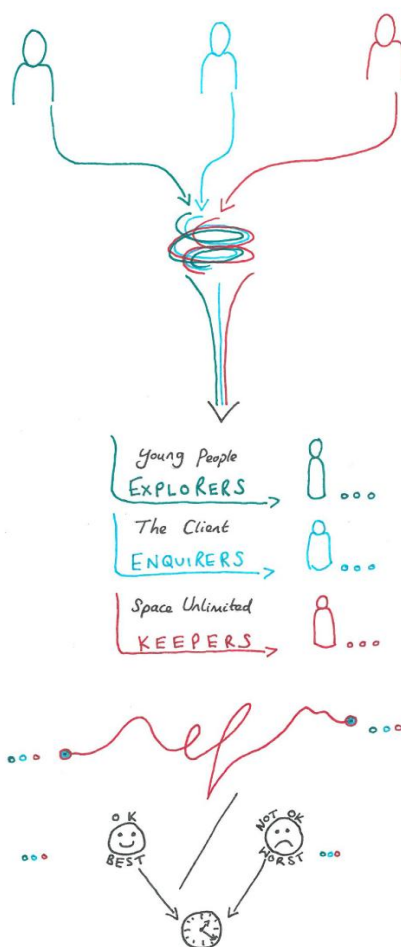 Young People
EXPLORERS
The Client
ENQUIRERS
Space Unlimited
KEEPERS
OK
BEST
NOT OK
WORST